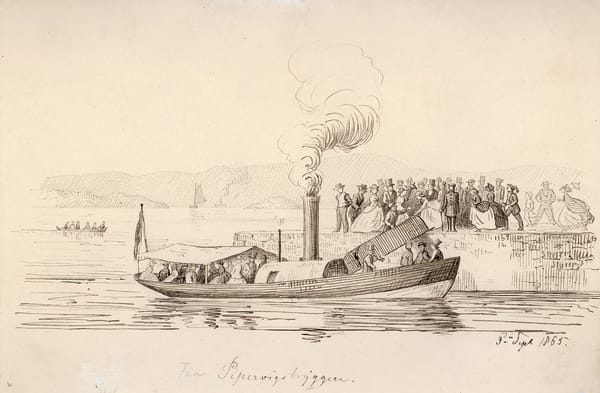 3. Sept. 1865.
Fra Pipervigsbryggen.